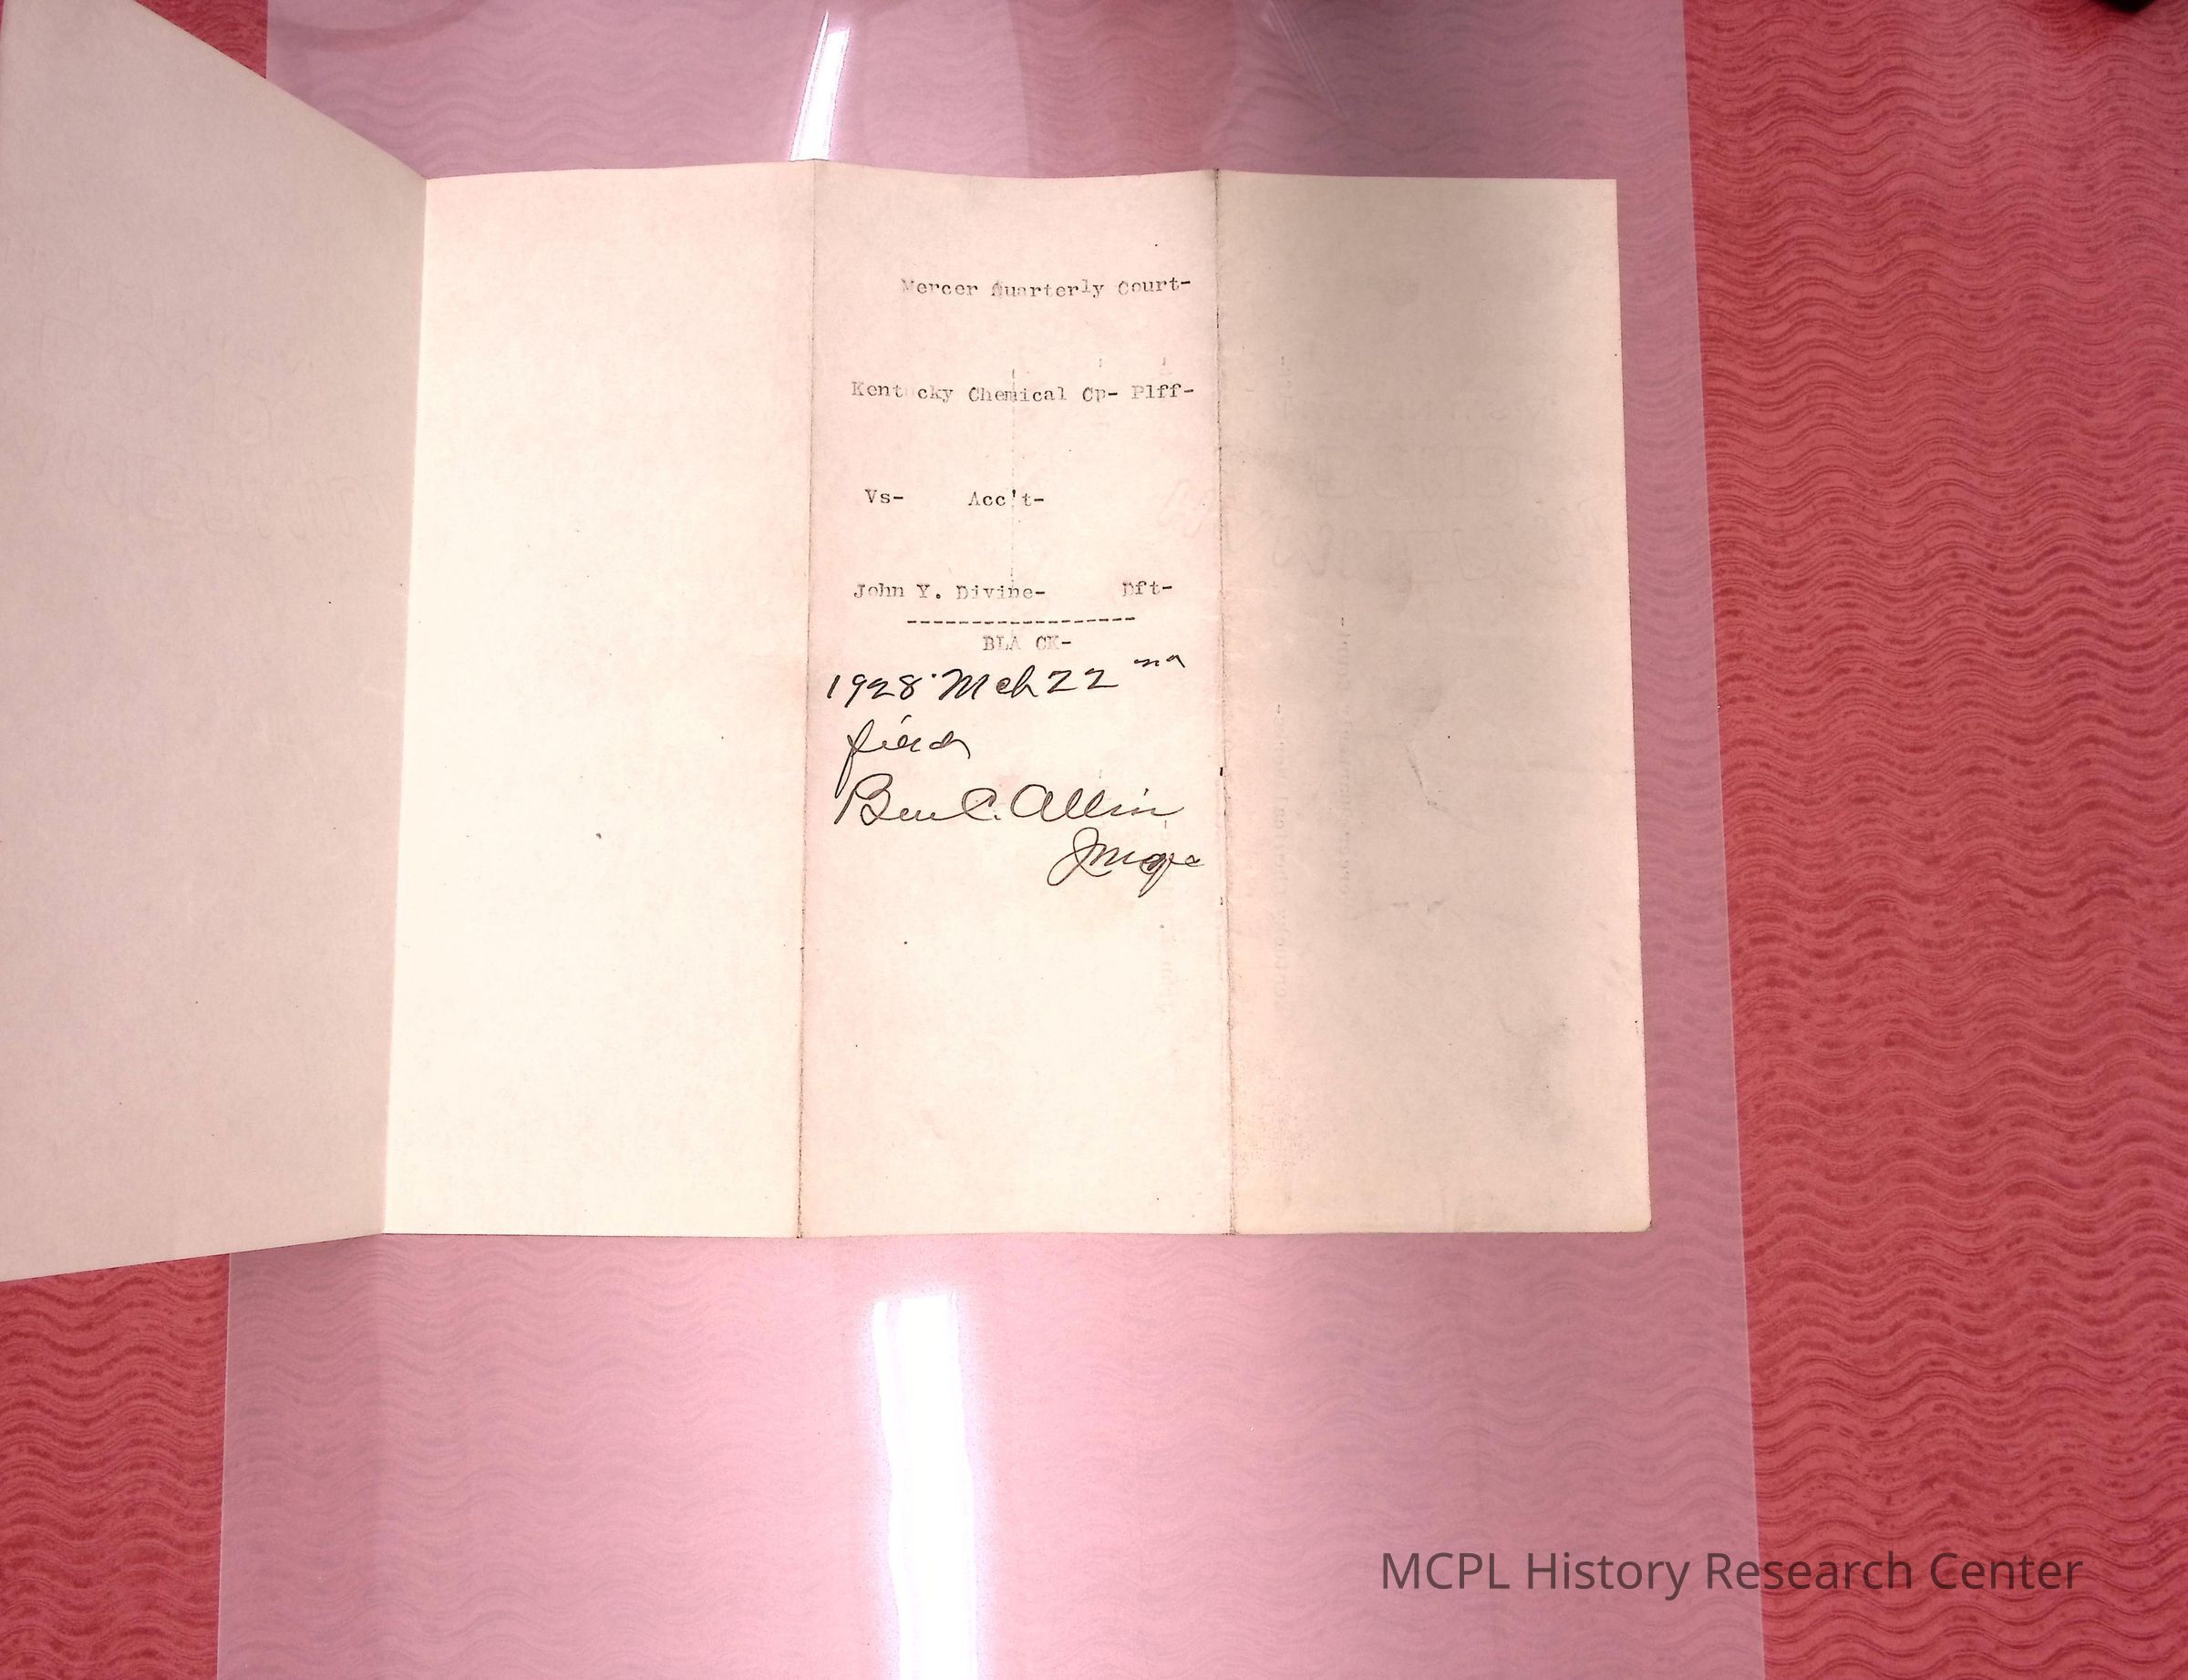 Mercer Quarterly Court-
Kentucky Chemical Cp- Plff-
Vs- Acc't-
John Y. Divine- Dft-
------------------
BLA CK-
1928 Mch 22nd
filed
Ben C. Allin
Judge
MCPL History Research Center